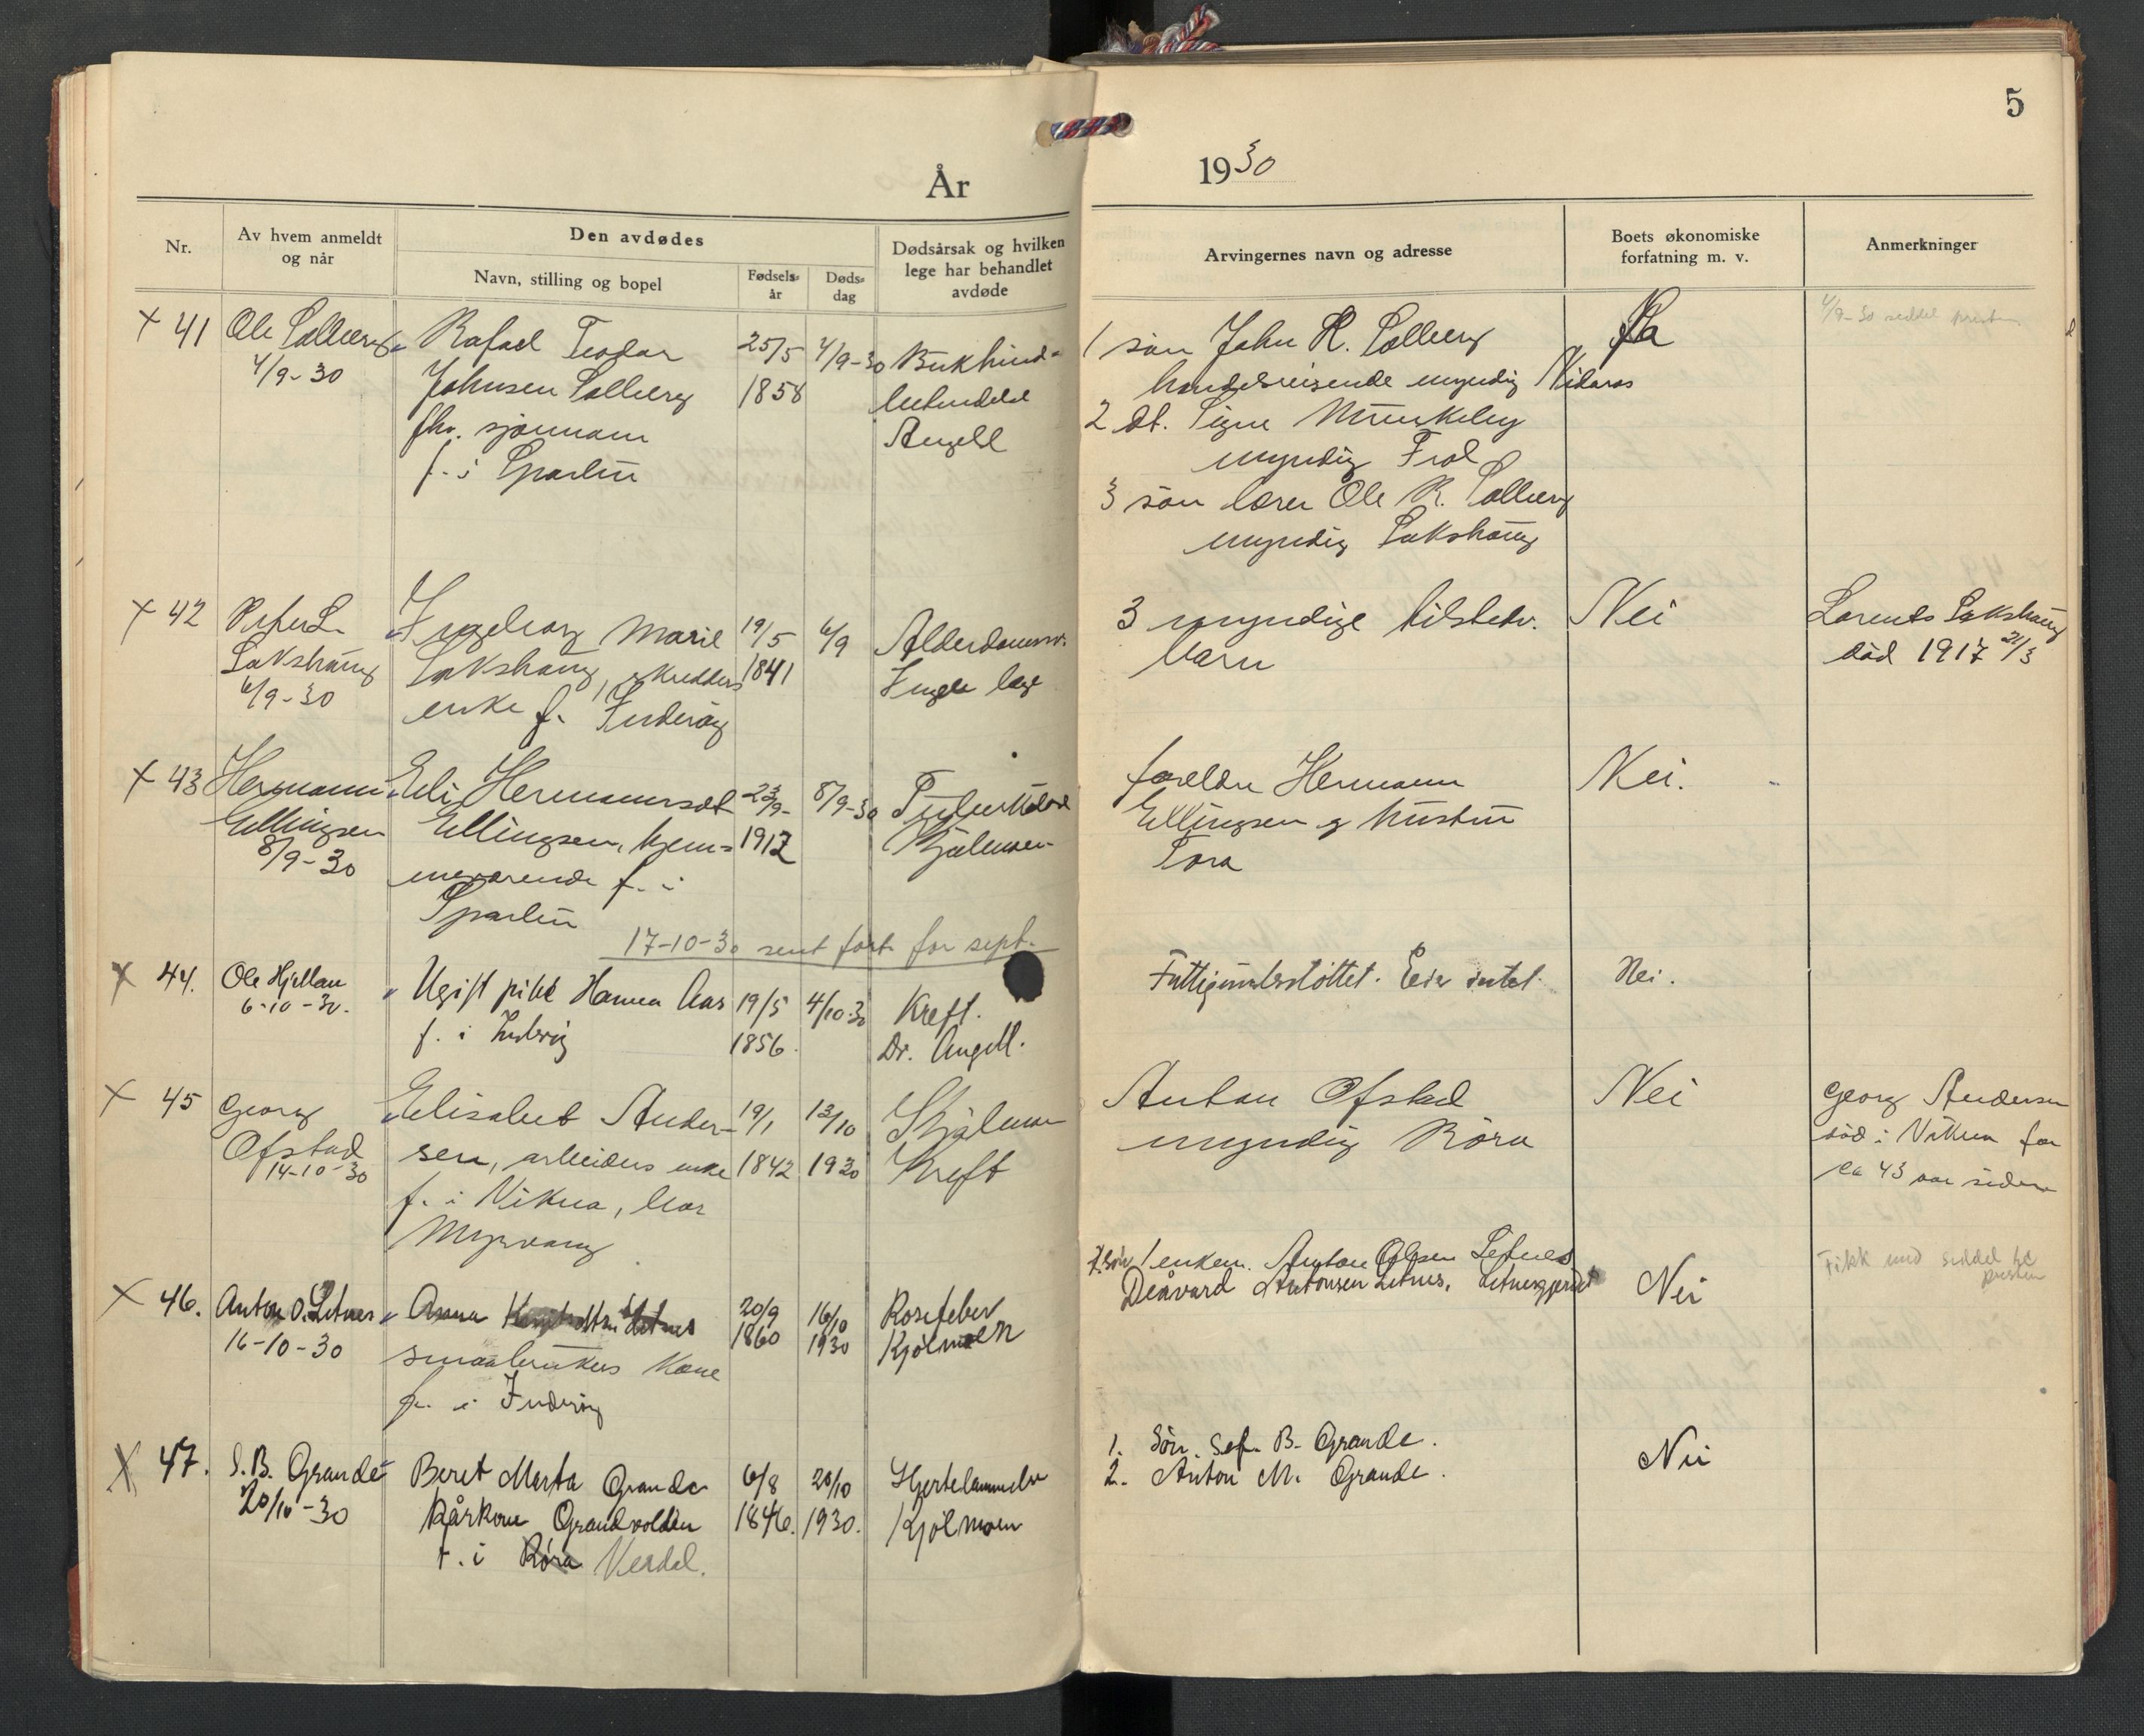 5
År 1930
Nr.
Av hvem anmeldt
og når
Den avdødes
Navn, stilling og bopel
Fødsels-
år
Døds-
dag
Dødsårsak og hvilken
lege har behandlet
avdøde
Arvingernes navn og adresse
Boets økonomiske
forfatning m. v.
Anmerkninger
X 41
Ole Solberg
4/9-30
Rafael Teodor
Johnsen Solberg
fhv. sjømann
f. i Sparbu
25/5
1858
4/9-30
Bukhind-
betendelse
Angell
1 søn John R. Solberg
handelsreisende myndig Nidaros
2 dt. Signe Munkeby
myndig Frol
3 søn lærer Ole R. Solberg
myndig Sakshaug
Ja
4/9-30 seddel presten
X 42
Peter L.
Sakshaug
6/9-30
Ingeborg Marie
Sakshaug, skredders
enke f. Inderøy
19/5
1841
6/9
Alderdomssv.
Ingen læge
3 myndige tilstedv.
barn
Nei
Lorents Sakshaug
død 1917 21/3
X 43
Hermann
Ellingsen
8/9-30
Eli Hermannsdt
Ellingsen, hjem-
meværende f. i
Sparbu
23/9-
1912
8/9-30
Tuberkulose
Kjølmoen
foreldre Hermann
Ellingsen og hustru
Tora
Nei.
17-10-30 sent fort. for sept.
X 44.
Ole Hjellan
6-10-30.
Ugift pike Hanna Aas
f. i Inderøy
19/5
1856.
4/10-30
Kreft.
Dr. Angell.
Fattigunderstøttet. Eier intet.
Nei.
X 45
Georg
Ofstad
14-10-30
Elisabet Ander-
sen, arbeiders enke
f. i Vikna, bor
Myrvang
19/1
1842
13/10
1930
Kjølmoen
Kreft
Anton Ofstad
myndig Røra
Nei
Georg Andersen
død i Vikna for
ca 43 aar siden
X 46.
Anton O. Letnes
16-10-30
Anna Letnes
smaabrukers kone
f. i Inderøy
20/9
1860
16/10
1930
Rosefeber
Kjølmoen
1 enkem. Anton Olsen Letnes
2. søn Deåvard Antonsen Letnes, Letnesgjerdet
Nei
Fikk med seddel til
presten
X 47.
S. B. Grande
20/10-30
Beret Marta Grande
Kårkone Grandvolden
f. i Røra Verdal.
6/8
1846.
20/10
1930.
Hjertelammelse
Kjølmoen
1. Søn. Sef. B. Grande.
2. Anton M. Grande.
Nei